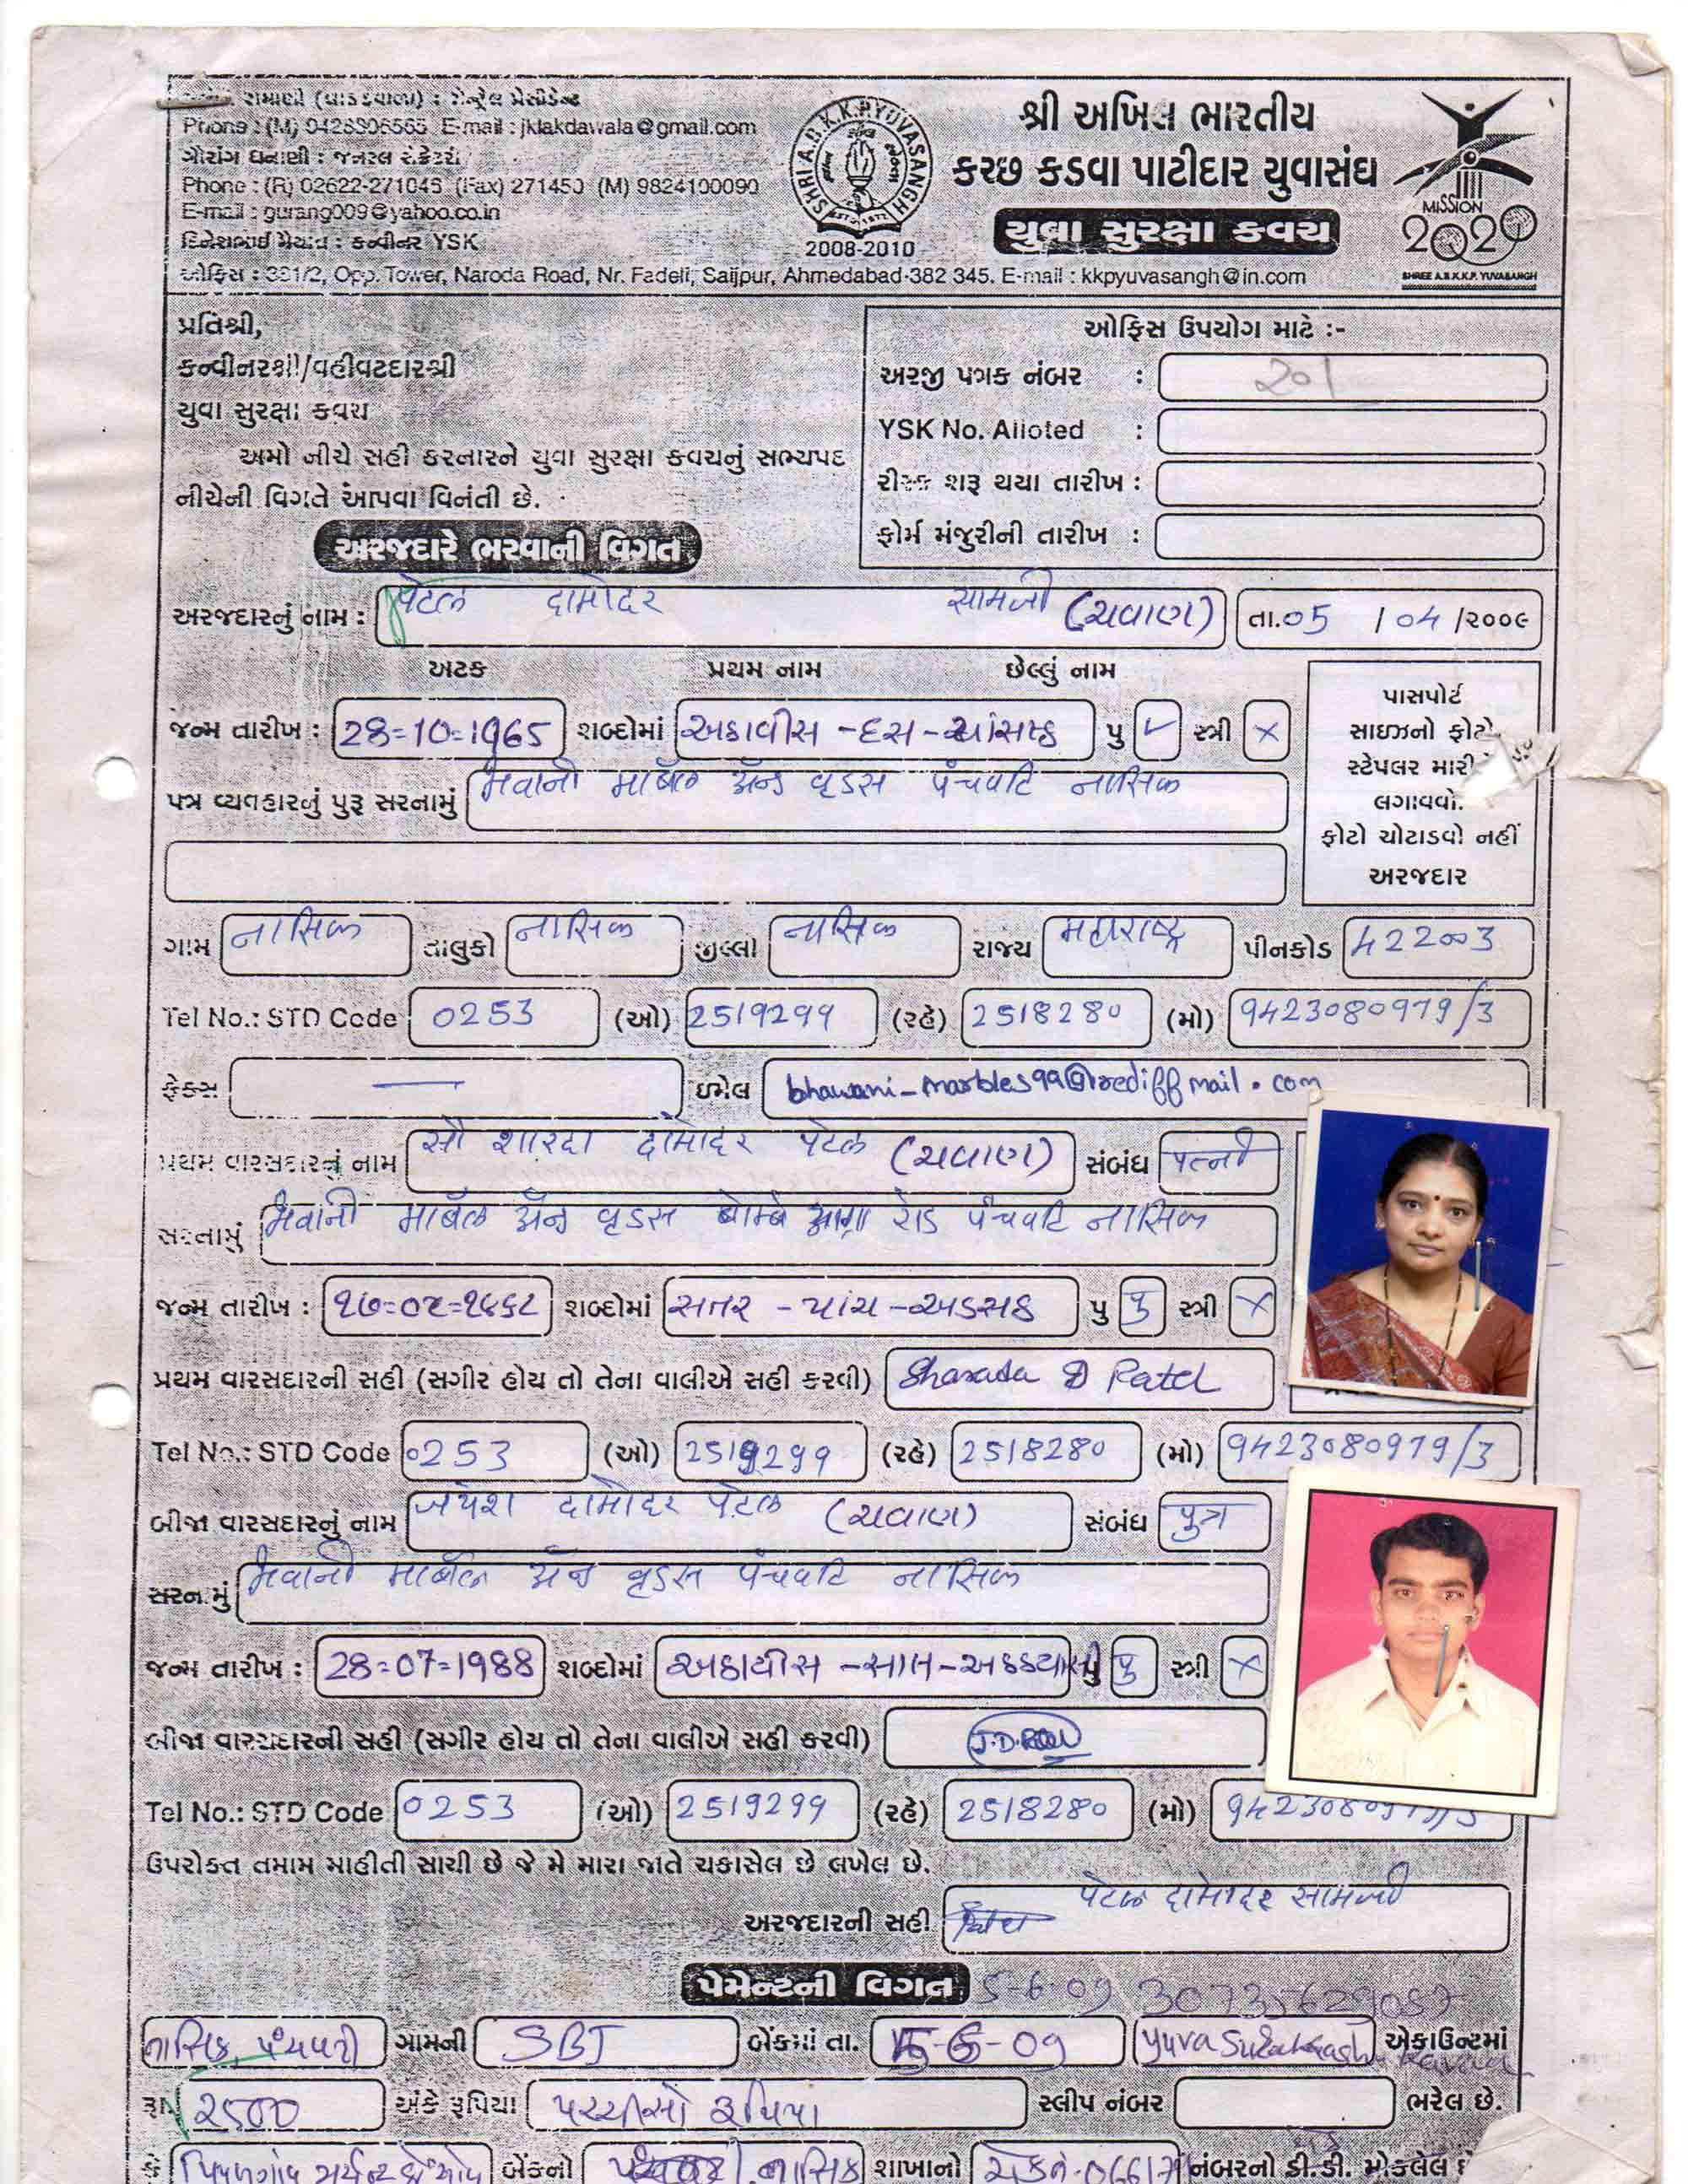 રામાણી (લાકડાવાલા) : સેન્ટ્રલ પ્રેસીડેન્ટ
E-mail : jklakdawala@gmail.com
ગૌરાંગ ધનાણી : જનરલ સેક્રેટરી
Phone : (R) 02622-271045 (Fax) 271450 (M) 9824100090
E-mail : gurang009@yahoo.co.in
દિનેશભાઈ : કન્વીનર YSK
ઓફિસ : 331/2, Opp. Tower, Naroda Road, Nr. Fadeli, Saijpur, Ahmedabad-382 345. E-mail : kkpyuvasangh@in.com
SHRI A.B.K.K.P. YUVASANGH
2008-2010
શ્રી અખિલ ભારતીય
કચ્છ કડવા પાટીદાર યુવાસંઘ
યુવા સુરક્ષા કવચ
MISSION
2020
SHREE A.B.K.K.P. YUVASANGH
પ્રતિશ્રી,
કન્વીનરશ્રી/વહીવટદારશ્રી
યુવા સુરક્ષા કવચ
અમો નીચે સહી કરનારને યુવા સુરક્ષા કવચનું સભ્યપદ
નીચેની વિગતે આપવા વિનંતી છે.
ઓફિસ ઉપયોગ માટે :-
અરજી પત્રક નંબર : 201
YSK No. Alloted :
રીસ્ક શરૂ થયા તારીખ :
ફોર્મ મંજુરીની તારીખ :
અરજદારે ભરવાની વિગત
અરજદારનું નામ : પટેલ દામોદર સામજી (ચવાણ) તા.05 / 04 /૨૦૦૯
અટક પ્રથમ નામ છેલ્લું નામ
જન્મ તારીખ : 28=10=1965 શબ્દોમાં અઠાવીસ - દસ - પાંસઠ પુ ✓ સ્ત્રી ×
પાસપોર્ટ
સાઇઝનો ફોટો
સ્ટેપલર મારી
લગાવવો.
ફોટો ચોટાડવો નહીં
અરજદાર
પત્ર વ્યવહારનું પુરૂ સરનામું ભવાની માર્બલ ઍન્ડ વુડસ પંચવટિ નાસિક
ગામ નાસિક તાલુકો નાસિક જીલ્લો નાસિક રાજ્ય મહારાષ્ટ્ર પીનકોડ 422003
Tel No.: STD Code 0253 (ઓ) 2519299 (રહે) 2518280 (મો) 9423080979/3
ફેક્સ — ઇમેલ bhawani-marbles99@rediffmail.com
પ્રથમ વારસદારનું નામ સૌ શારદા દામોદર પટેલ (ચવાણ) સંબંધ પત્ની
સરનામું ભવાની માર્બલ ઍન્ડ વુડસ બોમ્બે આગ્રા રોડ પંચવટિ નાસિક
જન્મ તારીખ : શબ્દોમાં સતર - પાંચ - અડસઠ પુ પુ સ્ત્રી ×
પ્રથમ વારસદારની સહી (સગીર હોય તો તેના વાલીએ સહી કરવી) Sharada D Patel
Tel No.: STD Code 0253 (ઓ) 2519299 (રહે) 2518280 (મો) 9423080979/3
બીજા વારસદારનું નામ જયેશ દામોદર પટેલ (ચવાણ) સંબંધ પુત્ર
સરનામું ભવાની માર્બલ ઍન્ડ વુડસ પંચવટિ નાસિક
જન્મ તારીખ : 28=07=1988 શબ્દોમાં અઠાવીસ - સાત - પુ પુ સ્ત્રી ×
બીજા વારસદારની સહી (સગીર હોય તો તેના વાલીએ સહી કરવી)
Tel No.: STD Code 0253 (ઓ) 2519299 (રહે) 2518280 (મો)
ઉપરોક્ત તમામ માહીતી સાચી છે જે મે મારા જાતે ચકાસેલ છે લખેલ છે.
અરજદારની સહી પટેલ દામોદર સામજી
પેમેન્ટની વિગત 5-6-09 30735629057
નાસિક, પંચવટી ગામની SBI બેંકમાં તા. 5-6-09 Yuva Surakhash Kavach એકાઉન્ટમાં
રૂા ૨૫૦૦ અંકે રૂપિયા પચ્ચીસો રૂપિયા સ્લીપ નંબર ભરેલ છે.
બેંકનો નાસિક શાખાનો નંબરનો ડી.ડી. મોકલેલ છે